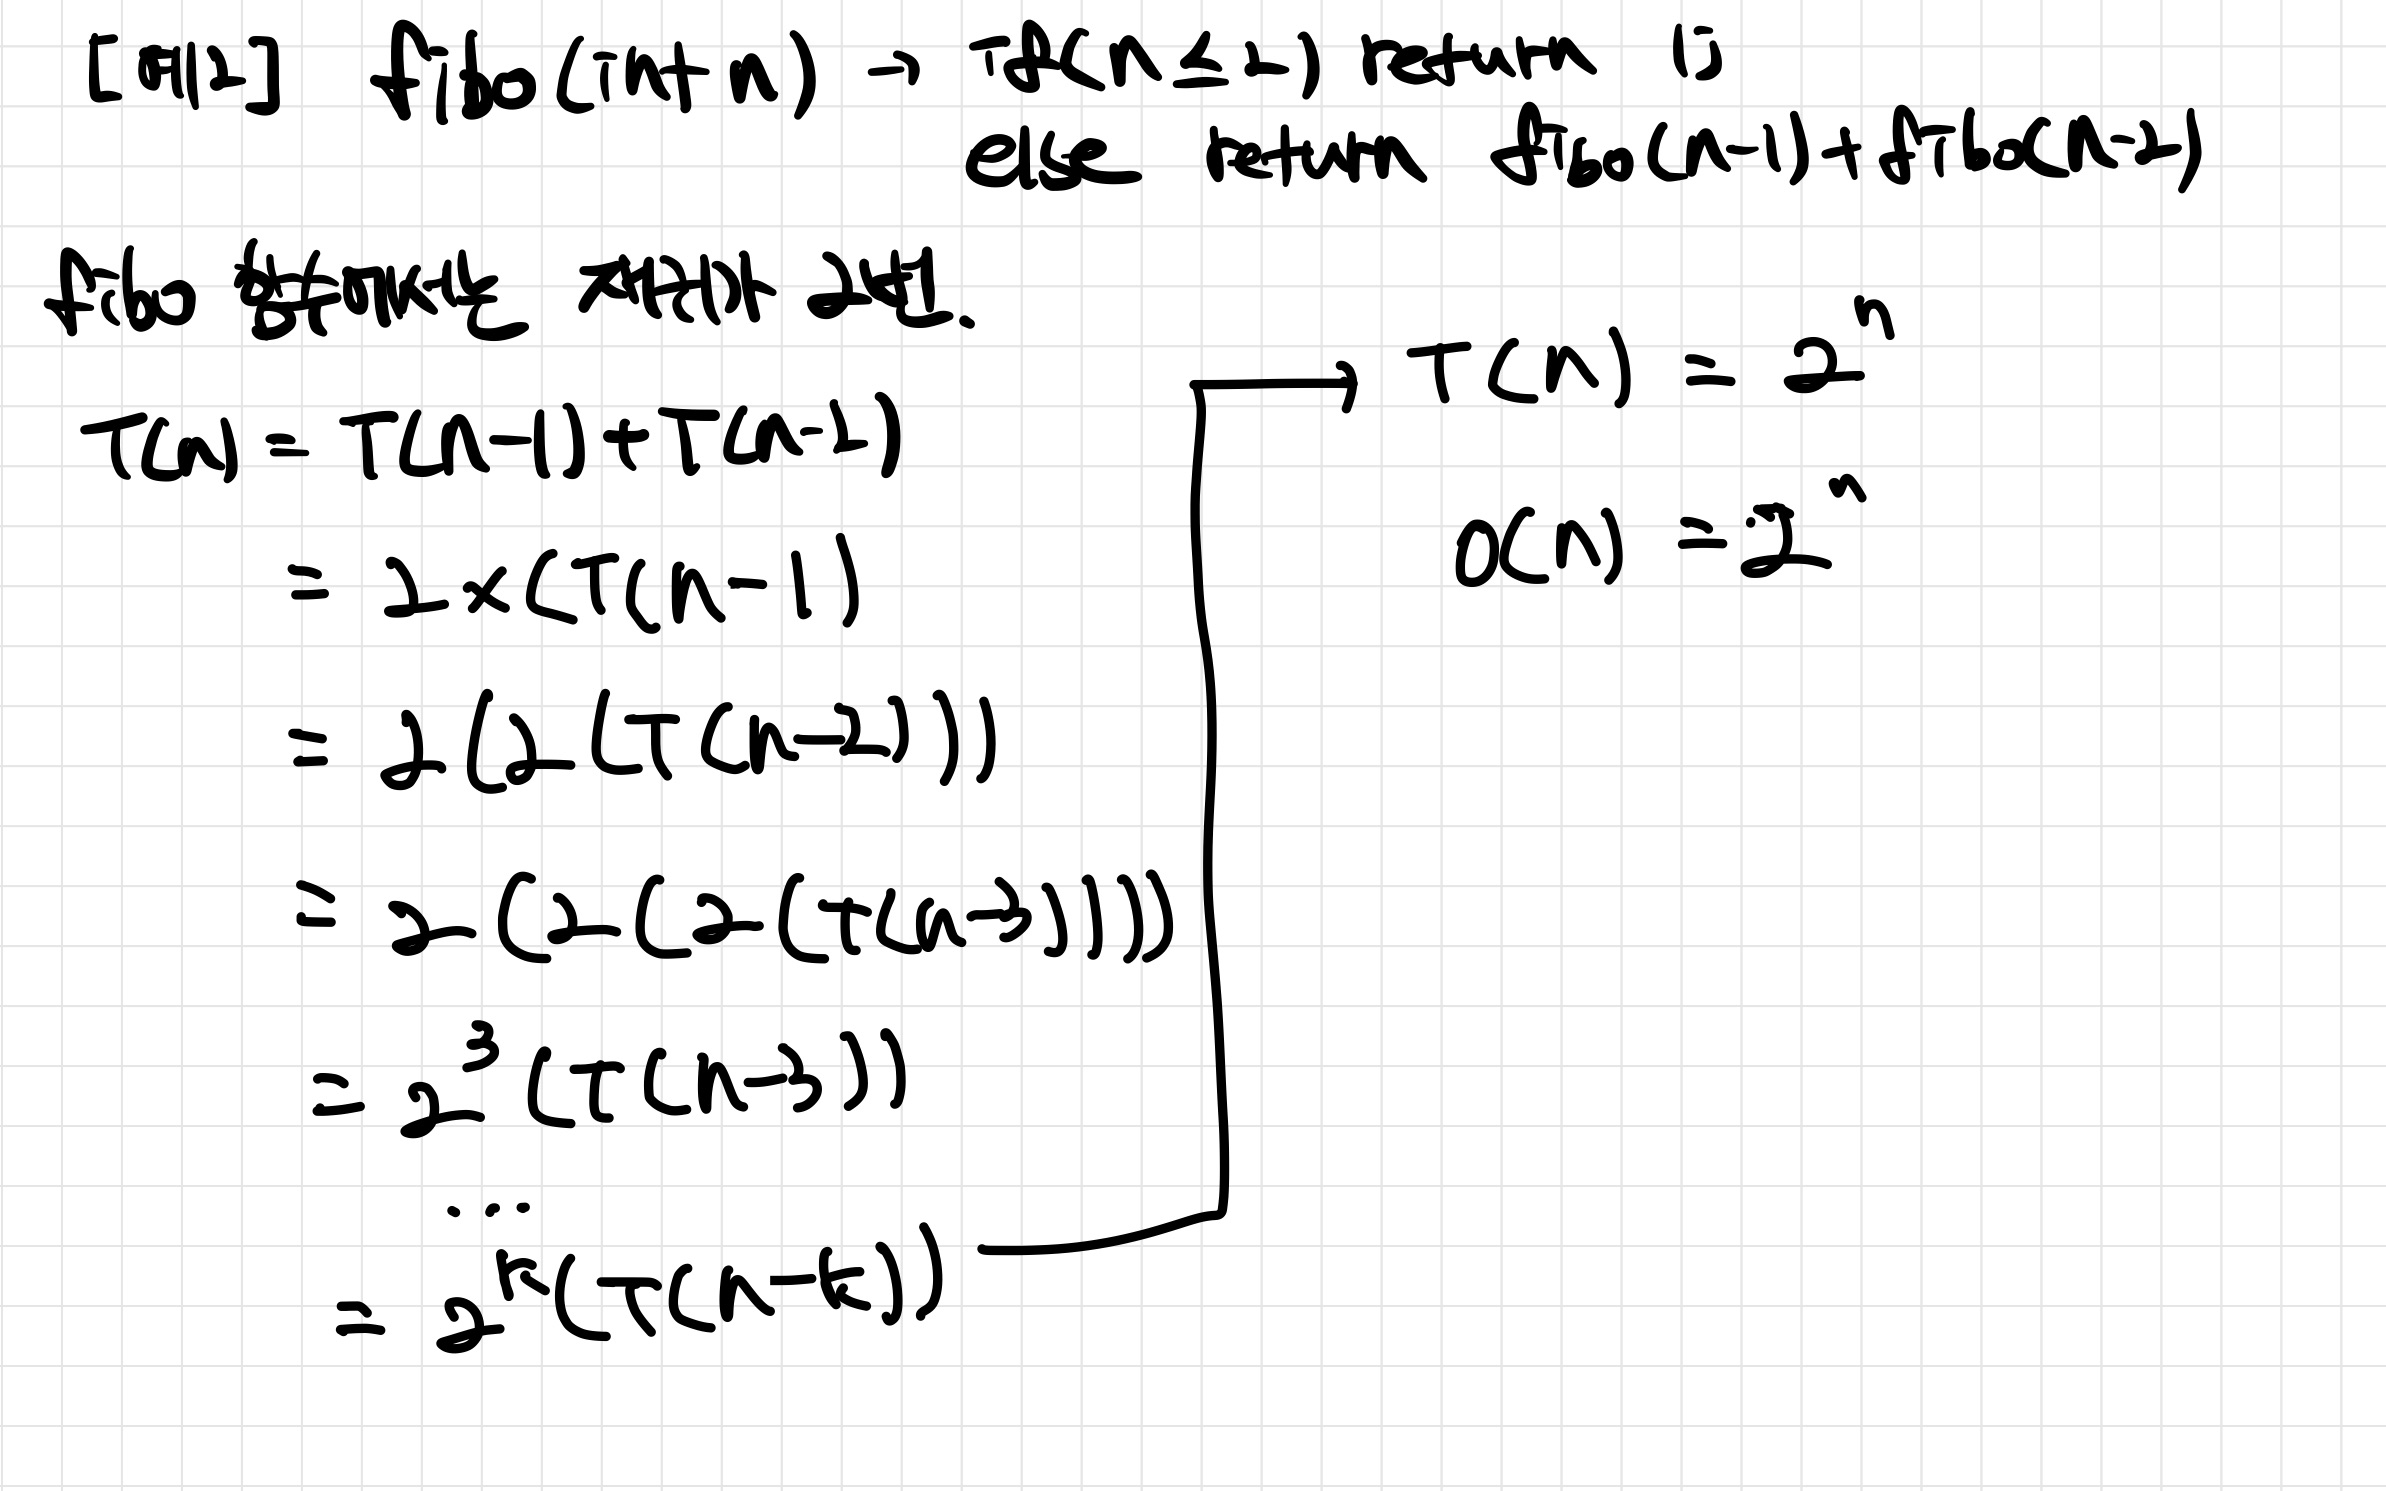 [예2] fibo(int n) → if(n ≤ 2) return 1;
else return fibo(n-1) + fibo(n-2)
fibo 재귀 2번.
T(n) = T(n-1) + T(n-2)
= 2×(T(n-1)
= 2(2(T(n-2)))
= 2(2(2(T(n-3))))
= 2³(T(n-3))
....
= 2ᵏ(T(n-k))
→ T(n) = 2ⁿ
O(n) = 2ⁿ